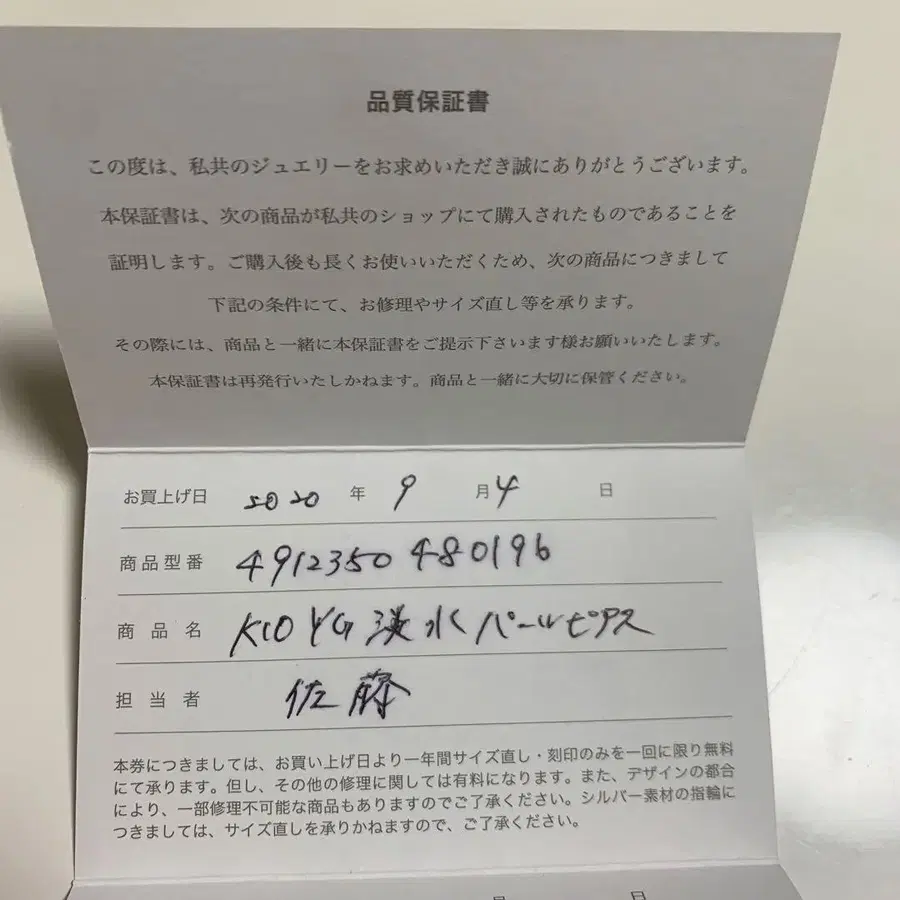 品質保証書
この度は、私共のジュエリーをお求めいただき誠にありがとうございます。
本保証書は、次の商品が私共のショップにて購入されたものであることを
証明します。ご購入後も長くお使いいただくため、次の商品につきまして
下記の条件にて、お修理やサイズ直し等を承ります。
その際には、商品と一緒に本保証書をご提示下さいます様お願いいたします。
本保証書は再発行いたしかねます。商品と一緒に大切に保管ください。
お買上げ日 2020 年 9 月 4 日
商品型番 4912350480196
商品名 K10 YG 淡水パールピアス
担当者 佐藤
本券につきましては、お買い上げ日より一年間サイズ直し・刻印のみを一回に限り無料
にて承ります。但し、その他の修理に関しては有料になります。また、デザインの都合
により、一部修理不可能な商品もありますのでご了承ください。シルバー素材の指輪に
つきましては、サイズ直しを承りかねますので、ご了承ください。
月 日